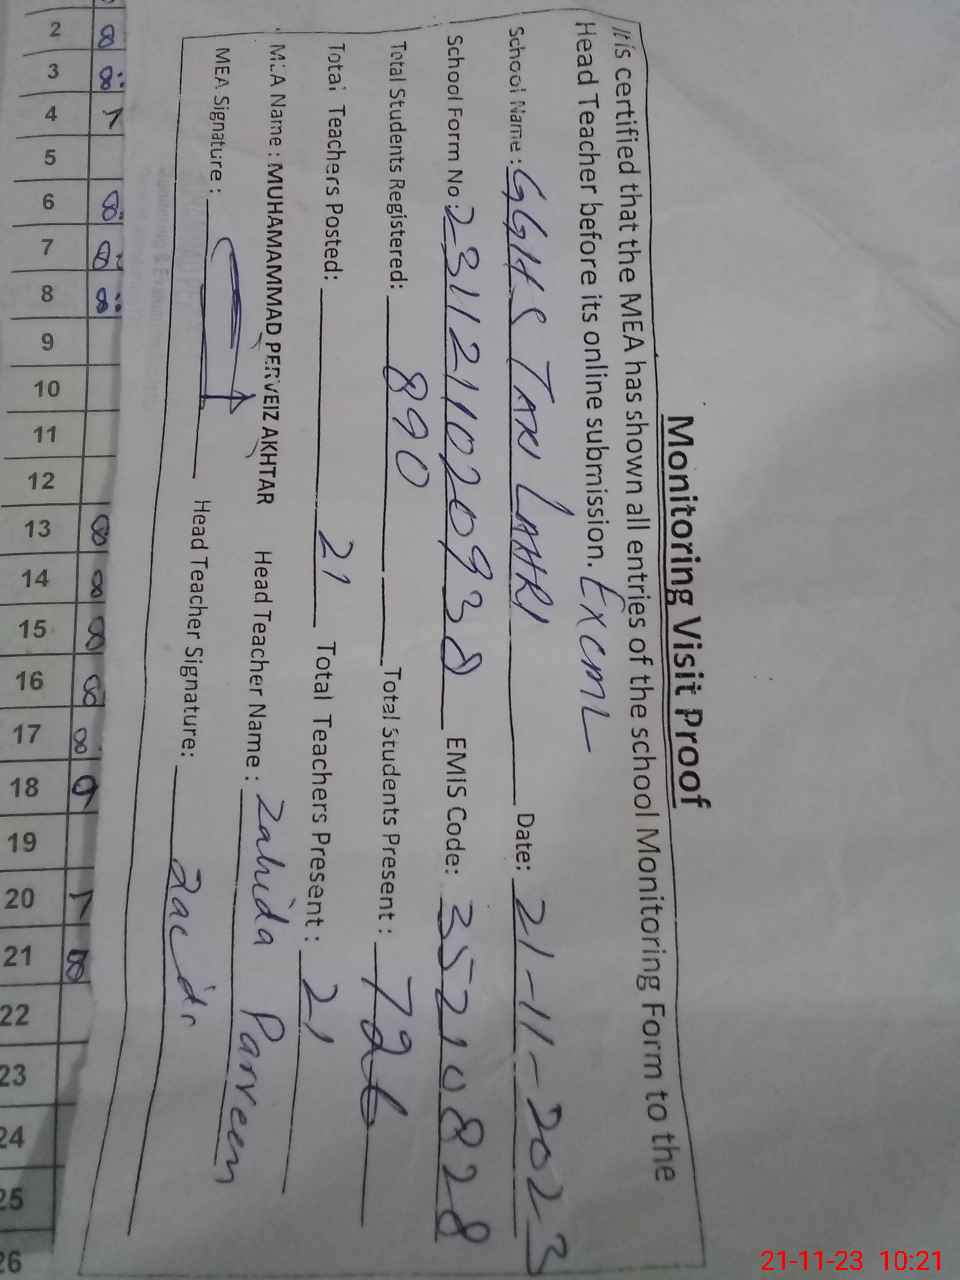 Monitoring Visit Proof
It is certified that the MEA has shown all entries of the school Monitoring Form to the
Head Teacher before its online submission. Excml
School Name: GGHS TAKI LAHRI Date: 21-11-2023
School Form No: 23112110209338 EMIS Code: 35210828
Total Students Registered: 890 Total Students Present: 726
Total Teachers Posted: 21 Total Teachers Present: 21
MEA Name: MUHAMAMMAD PERVEIZ AKHTAR Head Teacher Name: Zahida Parveen
MEA Signature: Head Teacher Signature:
2
3
4
5
6
7
8
9
10
11
12
13
14
15
16
17
18
19
20
21
22
23
24
25
26
21-11-23 10:21